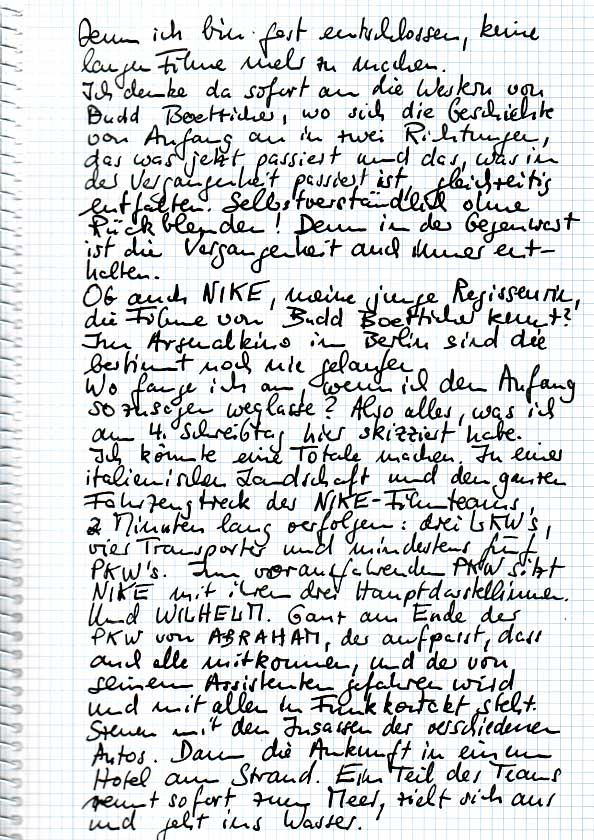 Denn ich bin fest entschlossen, keine
langen Filme mehr zu machen.
Ich denke da sofort an die Western von
Budd Boetticher, wo sich die Geschichte
von Anfang an in zwei Richtungen,
das was jetzt passiert und das, was in
der Vergangenheit passiert ist, gleichzeitig
entfalten. Selbstverständlich ohne
Rückblenden! Denn in der Gegenwart
ist die Vergangenheit auch immer ent-
halten.
Ob auch NIKE, meine junge Regisseurin,
die Filme von Budd Boetticher kennt?
Im Arsenalkino in Berlin sind die
bestimmt noch nie gelaufen.
Wo fange ich an, wenn ich den Anfang
sozusagen weglasse? Also alles, was ich
am 4. Schreibtag hier skizziert habe.
Ich könnte eine Totale machen. In einer
italienischen Landschaft und den ganzen
Fahrzeugtreck des NIKE-Filmteams,
2 Minuten lang verfolgen: drei LKW's,
vier Transporter und mindestens fünf
PKW's. Im vorausfahrenden PKW sitzt
NIKE mit ihren drei Hauptdarstellerinnen.
Und WILHELM. Ganz am Ende der
PKW von ABRAHAM, der aufpasst, dass
auch alle mitkommen, und der von
seinem Assistenten gefahren wird
und mit allen in Funkkontakt steht.
Szenen mit den Insassen der verschiedenen
Autos. Dann die Ankunft in einem
Hotel am Strand. Ein Teil des Teams
rennt sofort zum Meer, zieht sich aus
und geht ins Wasser.